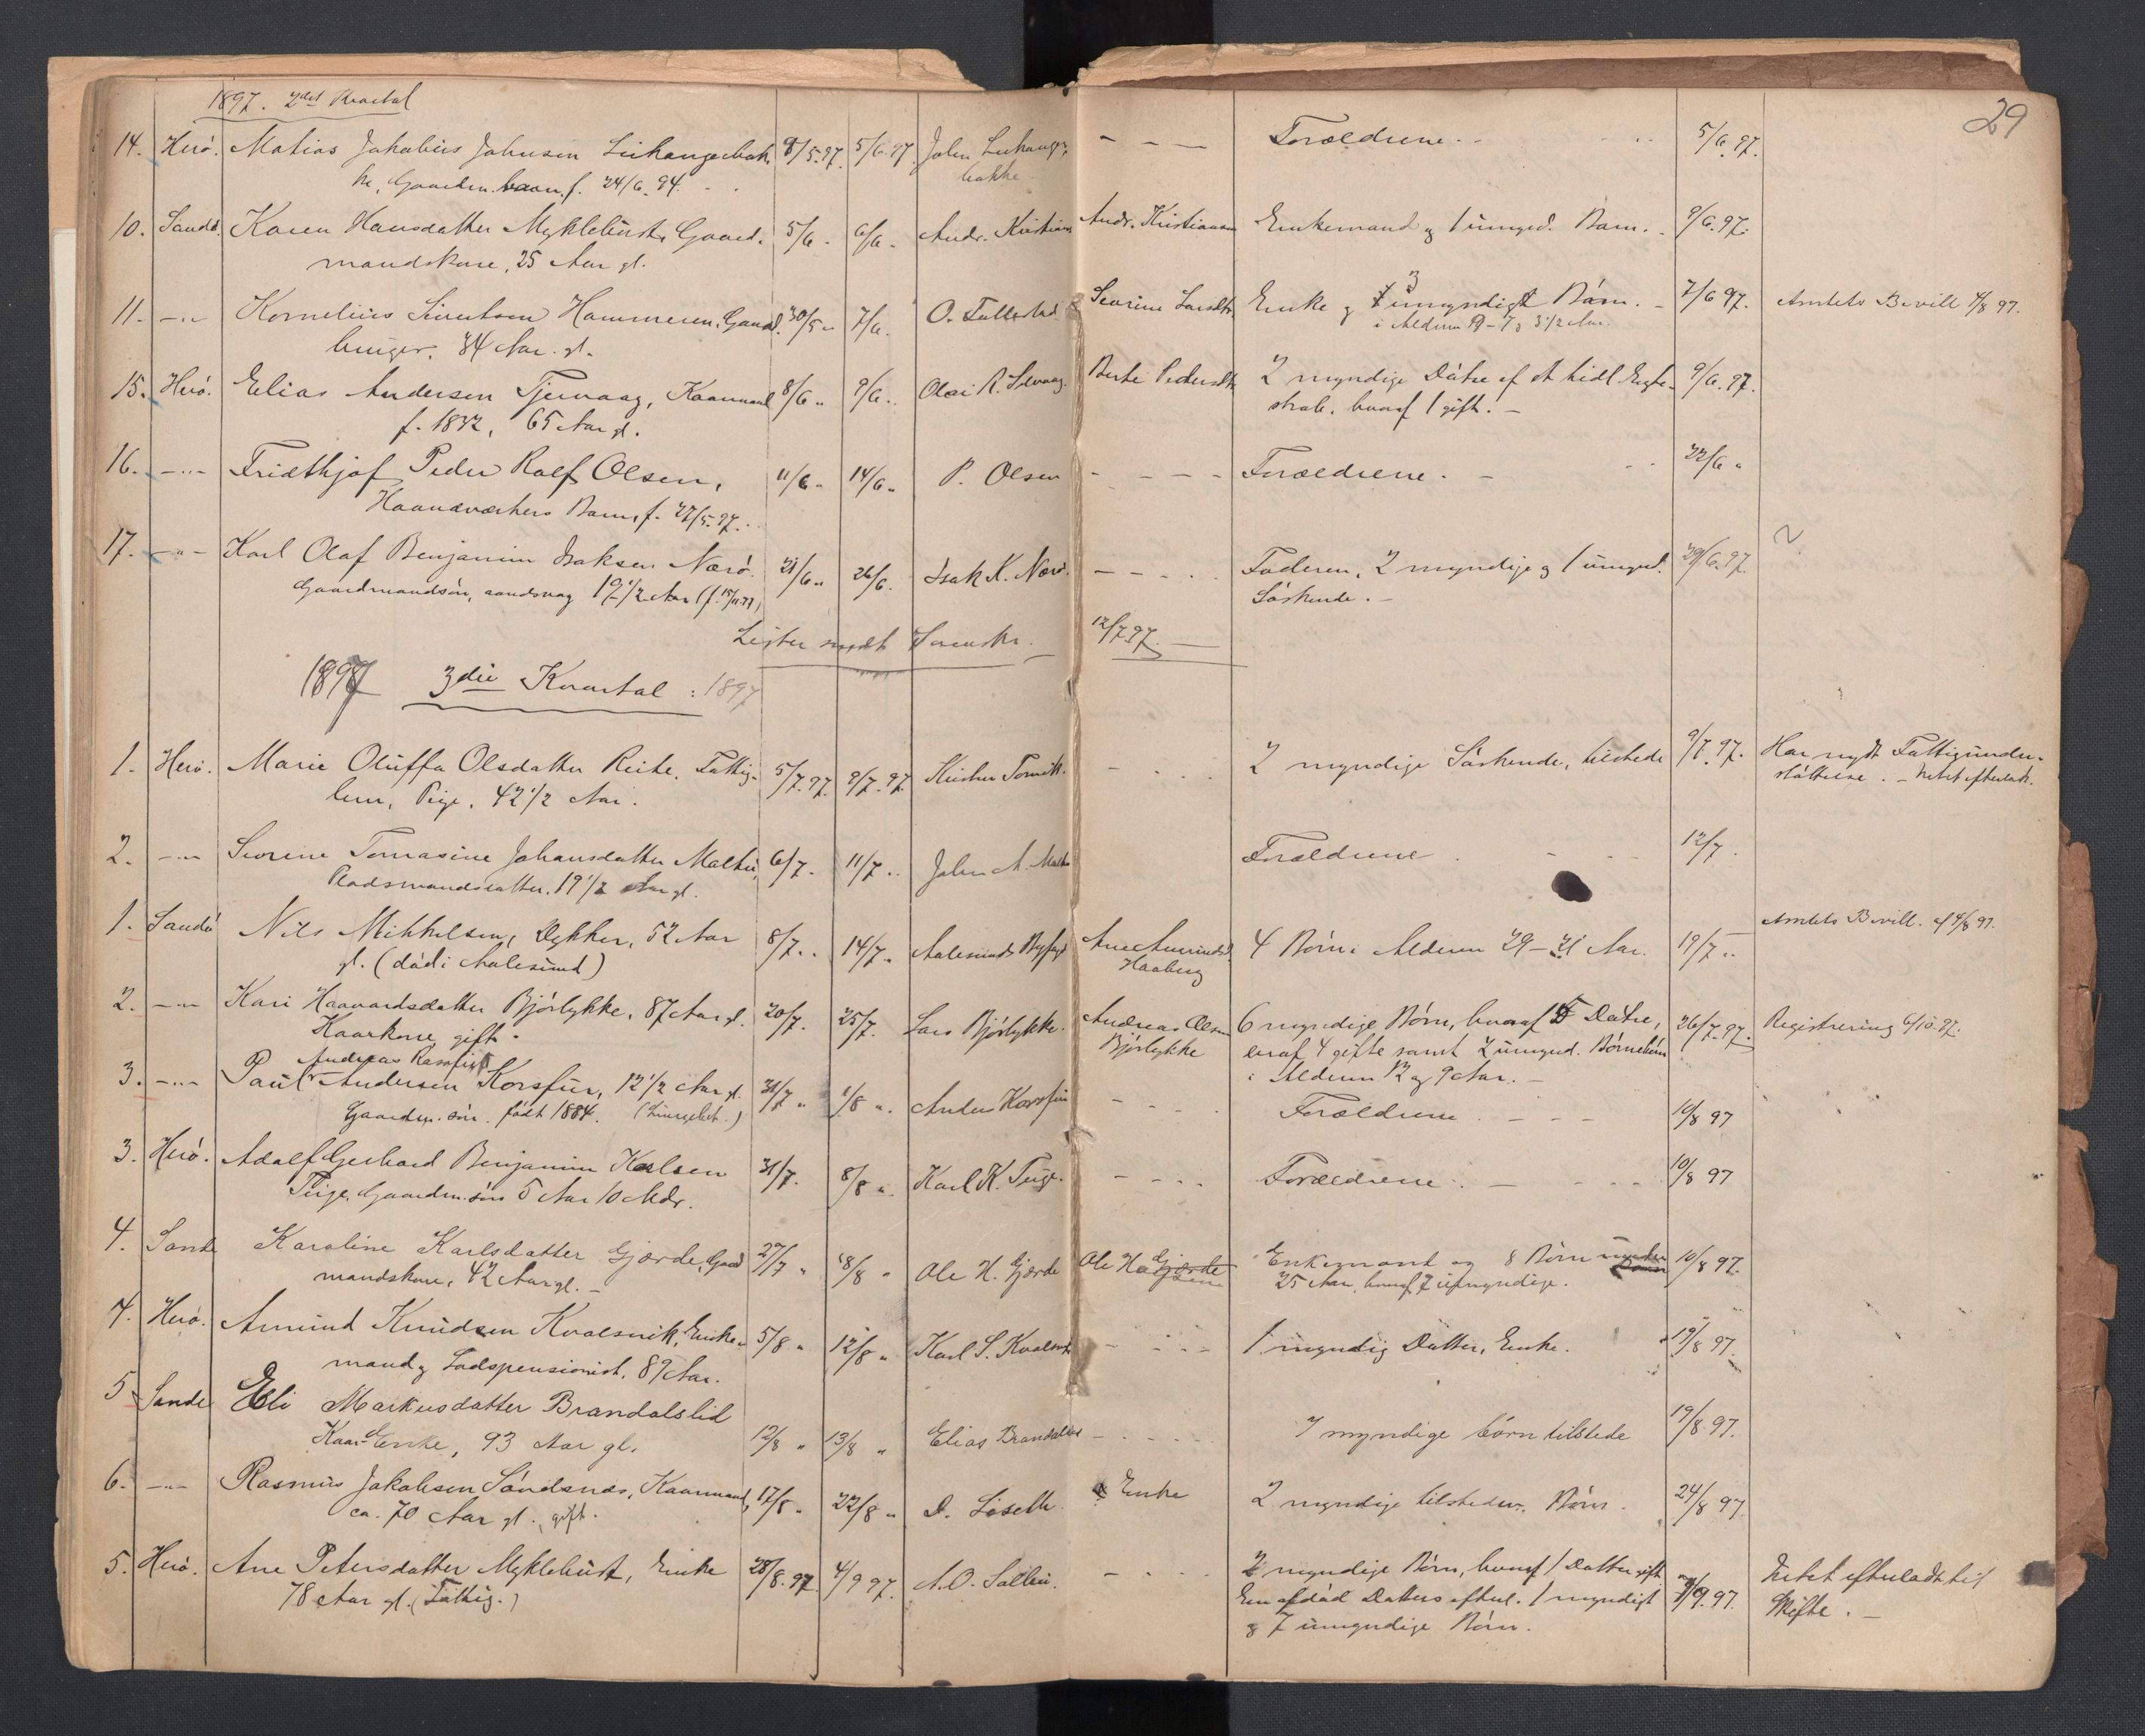 29
1897. 2det Kvartal
14. Herö. Matias Jakobius Johnsen Leikangerbak- 8/5.97. 5/6.97. John Leikanger- - - - Forældrene. 5/6.97.
ke, Gaardm. barn, f. 24/6.94. bakke
10. Sandö. Karen Hansdatter Myklebust, Gaard- 5/6. 6/6. Andr. Kristians Andr. Kristiansen Enkemand og 1 umynd. Barn. 9/6.97.
mandskone, 25 Aar gl.
11. -"- Kornelius Sivertsen Hammeren, Gaard- 30/5 " 7/6. O. Fallestad Severine Larsdtr Enke og 3 umyndige Børn. 7/6 97. Amtets Bevill 4/8 97.
bruger, 34 Aar gl. i Alderen 9 - 7 og 3 1/2 Aar.
15. Herö. Elias Andersen Tjervaag, Kaarmand 8/6 " 9/6 " Olai R. Berte Pedersdtr 2 myndige Døtre af et tidl. Egte- 9/6.97.
f. 1832, 65 Aar gl. skab, hvoraf 1 gift. -
16. -"- Fridthjof Peder Rolf Olsen, 11/6 " 14/6 " P. Olsen - - - - Forældrene. - 22/6 "
Haandværkers Barn, f. 27/5.97.
17. -"- Karl Olaf Benjamin Isaksen Nærö 21/6 " 26/6. Isak K. Nærö. - - - Faderen, 2 myndige og 1 umynd. 29/6.97.
Gaardmandsøn, aandssvag 19 1/2 Aar (f. 15/11.77) Søskende. -
Lister sendt Sorenskr. 12/7 97.
1897 3die Kvartal : 1897
1. Herö. Marie Oluffa Olsdatter Reite, Fattig- 5/7.97. 9/7.97. Kristen - - - 2 myndige Søskende, tilstede 9/7.97. Har nydt Fattigunder-
lem, Pige, 42 1/2 Aar. støttelse. - Intet efterladt.
2. -"- Severine Tomasine Johansdatter Malkn, 6/7. 11/7 " John A. Forældrene - - - 12/7.
Pladsmandsdatter, 19 1/2 Aar gl.
1. Sandö Nils Mikkelsen, Dykker, 52 Aar 8/7 " 14/7 " Aalesunds Byfogd Ane Amundsd. 4 Børn i Alderen 29 - 21 Aar. 19/7 " Amtets Bevill. af 4/8 97.
gl. (død i Aalesund) Haaberg
2. -"- Kari Haavardsdatter Bjørlykke, 87 Aar gl. 20/7. 25/7. Lars Bjørlykke. Andreas Olsen 6 myndige Børn, hvoraf 5 Døtre, 26/7.97. Registrering 6/10.97.
Kaarkone, gift. Bjørlykke hvoraf 4 gifte samt 2 umynd. Børnebørn
i Alderen 12 og 9 Aar. -
Andreas
3. -"- Paul Andersen Korsfur, 12 1/2 Aar gl. 31/7 " 1/8 " Anders Korsfur - - - Forældrene - - - 10/8 97
Gaardm. søn. født 1884.
3. Herö. Adolf Gerhard Benjamin Karlsen 31/7. 8/8 " Karl K. - - - - Forældrene. - - - - 10/8 97
Gaardm. søn 5 Aar 10 Mdr.
4. Sande Karoline Karlsdatter Gjærde, Gaard 27/7 " 8/8 " Ole H. Gjærde Ole H. Gjærde Enkemand og 8 Børn under 10/8 97.
mandskone, 42 Aar gl. - 25 Aar, hvoraf 7 umyndige.
4. Herö. Amund Knudsen Kvalsvik, Enke- 5/8 " 12/8 " Karl S. Kvalsvik - - - - 1 myndig Datter, Enke. 19/8 97.
mand og Lodspensionist, 89 Aar.
5 Sande Eli Markusdatter Brandalslid
Kaar Enke, 93 Aar gl. 12/8 " 13/8 " Elias Brandalslid - - - - 7 myndige børn tilstede 19/8 97.
6. -"- Rasmus Jakobsen Søndsnæs, Kaarmand 17/8 " 22/8 " D. Liseth. Enke 2 myndige tilstedev. Børn. 24/8 97.
ca. 70 Aar gl., gift.
5. Herö. Ane Petersdatter Myklebust, Enke 28/8.97. 4/9 97. A.O. - - - 2 myndige Børn, hvoraf 1 Datter gift 7/9.97. Intet efterladt til
78 Aar gl. (Fattig.) En afdød Datters efterl. 1 myndigt Skifte. -
og 7 umyndige Børn.